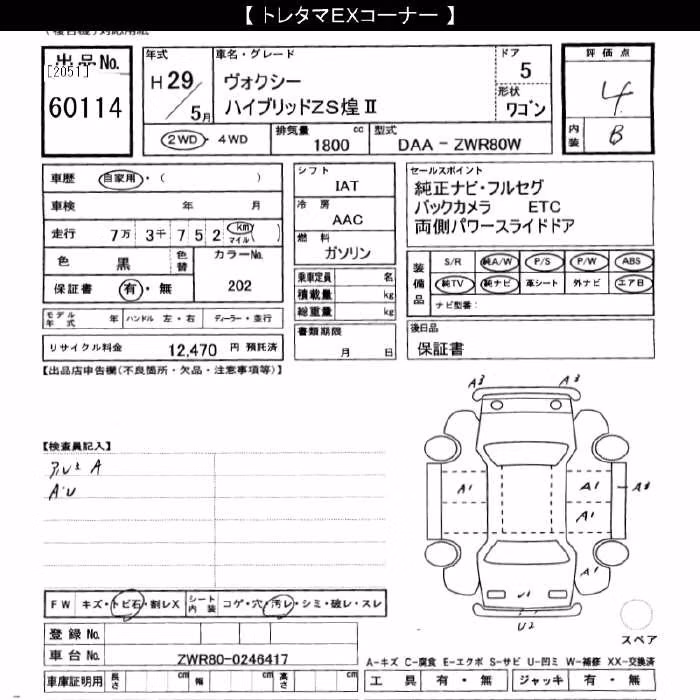 【 トレタマEXコーナー 】
出品No.
[2051]
60114
年式
H 29 / 5月
車名・グレード
ヴォクシー
ハイブリッドZS煌Ⅱ
ドア
5
形状
ワゴン
評価点
4
内装
B
2WD・4WD
排気量 1800 cc
型式 DAA - ZWR80W
車歴 自家用・( )
車検 年 月
走行 7万 3千 7 5 2 km マイル( )
色 黒 色替 カラーNo. 202
保証書 有・無
モデル年式 年 ハンドル 左・右 ディーラー・並行
リサイクル料金 12,470 円 預託済
シフト
IAT
冷房
AAC
燃料
ガソリン
乗車定員 名
積載量 kg
総重量 kg
書類期限
月 日
セールスポイント
純正ナビ・フルセグ
バックカメラ ETC
両側パワースライドドア
装備品
S/R 純A/W P/S P/W ABS
純TV 純ナビ 革シート 外ナビ エアB
ナビ型番:
後日品
保証書
【出品店申告欄(不良箇所・欠品・注意事項等)】
【検査員記入】
アルミ A
A・U
A3 A3
A1 A1 A1 A1
U1
U2
FW キズ・トビ石・割レX シート内装 コゲ・穴・汚レ・シミ・破レ・スレ
登録 No.
車台 No. ZWR80-0246417
車庫証明用 長さ cm 幅 cm 高さ cm
スペア
A-キズ C-腐食 E-エクボ S-サビ U-凹ミ W-補修 XX-交換済
工具 有・無 ジャッキ 有・無